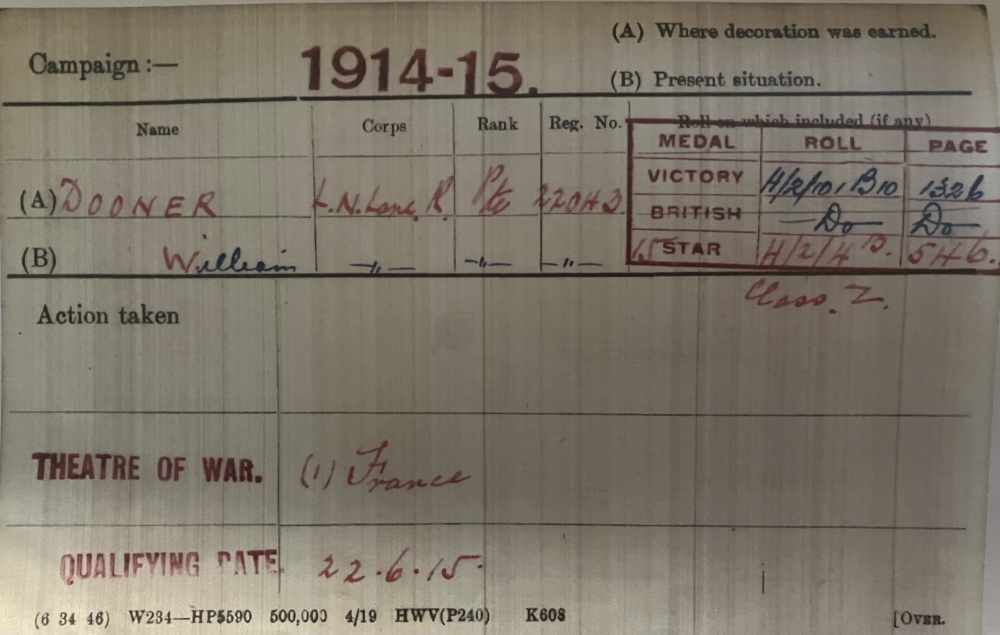 (A) Where decoration was earned.
Campaign :— 1914-15.
(B) Present situation.
Name Corps Rank Reg. No. Roll on which included (if any)
MEDAL ROLL PAGE
(A) DOONER L.N.Lanc.R. Pte 22043 VICTORY H/2/101 B10 1326
BRITISH —Do— Do—
(B) William —"— —"— —"— 15 STAR H/2/4 B. 546.
Class. Z.
Action taken
THEATRE OF WAR. (1) France
QUALIFYING DATE. 22.6.15.
(6 34 46) W234—HP5590 500,000 4/19 HWV(P240) K608 [OVER.